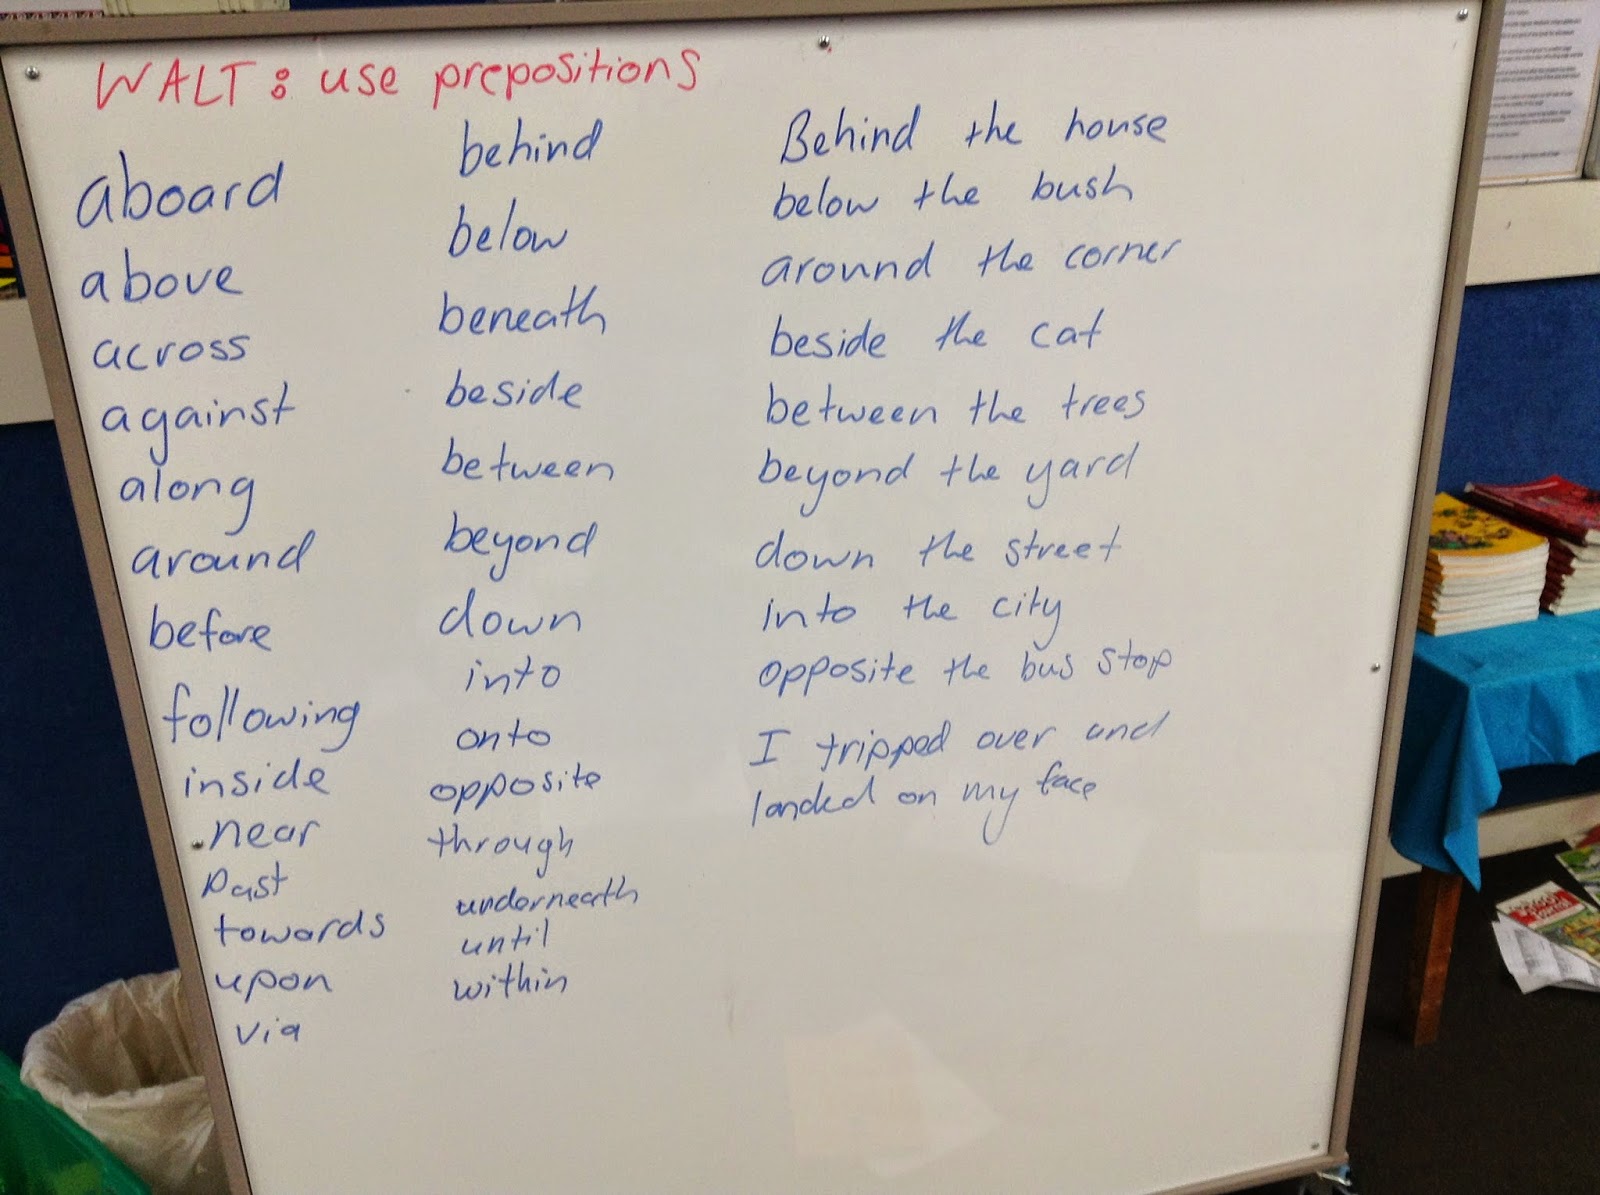 WALT: use prepositions
aboard
above
across
against
along
around
before
following
inside
near
past
towards
upon
via
behind
below
beneath
beside
between
beyond
down
into
onto
opposite
through
underneath
until
within
Behind the house
below the bush
around the corner
beside the cat
between the trees
beyond the yard
down the street
into the city
opposite the bus stop
I tripped over and
landed on my face